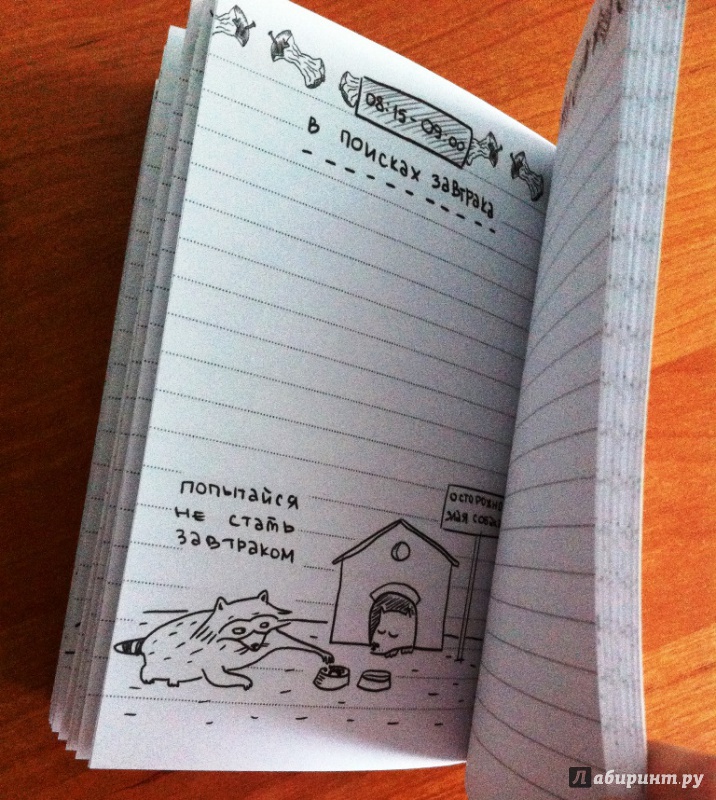 08:15-09:00
в поисках завтрака
попытайся
не стать
завтраком
осторожно
злая собака
Лабиринт.ру